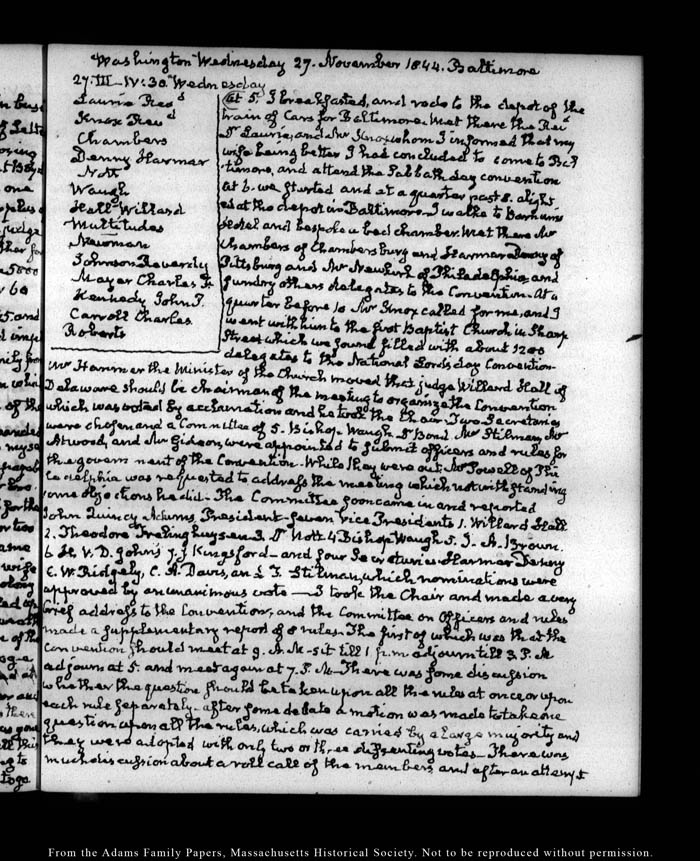 Washington Wednesday 27. November 1844. Baltimore
27. III–IV:30. Wednesday
Laurie Revd
Knox Revd
Chambers
Denny Harmar
Nott
Waugh
Hall Willard
Multitudes
Newman
Johnson Reverdy
Mayer Charles F.
Kennedy John P.
Carroll Charles
Roberts
At 5. I breakfasted, and rode to the depot of the
train of Cars for Baltimore. Met there the Revd
Dr Laurie, and Mr Knox whom I informed that my
wife being better I had concluded to come to Bal
timore, and attend the Sabbath day convention
At 6. we started and at a quarter past 8. alight
ed at the depot in Baltimore. I walked to Barnum's
Hotel and bespoke a bed chamber. Met there Mr
Chambers of Chambersburg and Harmar Denny of
Pittsburg and Mr Newkirk of Philadelphia, and
sundry others delegates to the Convention. At a
quarter before 10 Mr Knox called for me, and I
went with him to the first Baptist Church in Sharp
Street which we found filled with about 1200
delegates to the National Lord's day Convention
Mr Hammer the Minister of the Church moved that judge Willard Hall of
Delaware should be chairman of the meeting to organize the Convention
which was voted by acclamation and he took the Chair. Two Secretaries
were chosen and a Committee of 5. Bishop Waugh, Dr Bond, Mr Stilman, Mr
Atwood, and Mr Gideon, were appointed to submit officers and rules for
the government of the Convention. While they were out Mr Powell of Phi
ladelphia was requested to address the meeting which notwithstanding
some objections he did. The Committee soon came in and reported
John Quincy Adams, President–seven Vice Presidents 1. Willard Hall
2. Theodore Frelinghuysen 3. Dr Nott 4 Bishop Waugh 5. J. A. Brown.
6 H. V. D. Johns 7. J Kingsford–and four Secretaries Harmar Denny
C. W. Ridgely, C. A. Davis, and T. Stilman, which nominations were
approved by an unanimous vote — I took the Chair and made a very
brief address to the Convention, and the Committee on Officers and rules
made a supplementary report of 8 rules. The first of which was that the
Convention should meet at 9. A.M–sit till 1 from adjourn till 3. P. M
adjourn at 5. and meet again at 7. P. M. There was some discussion
whether the question should be taken upon all the rules at once, or upon
each rule separately–after some debate a motion was made to take one
question upon all the rules, which was carried by a large majority and
they were adopted with only two or three dissenting votes–There was
much discussion about a roll call of the members, and after an attempt
From the Adams Family Papers, Massachusetts Historical Society. Not to be reproduced without permission.